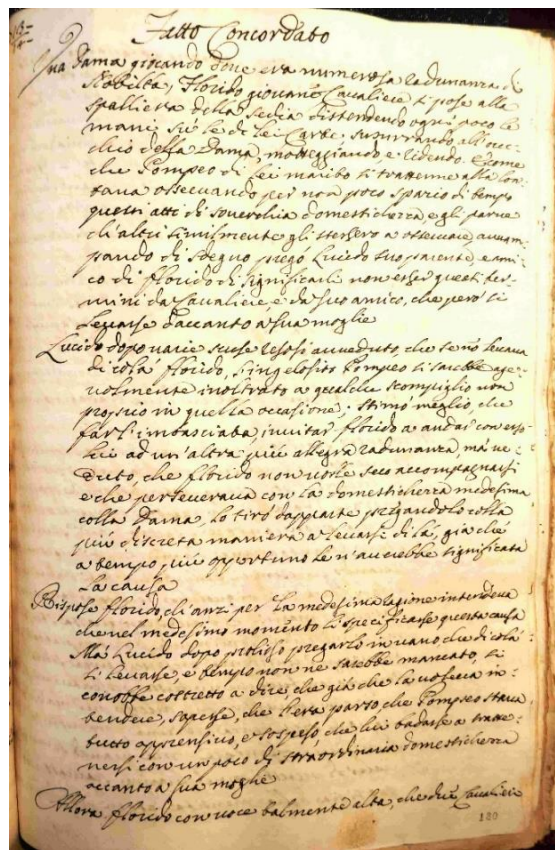 Fatto Concordato
Una Dama giocando dove era numerosa radunanza di
Nobiltà, Florido giovane Cavaliere si pose alla
spalliera della sedia distendendo ogni poco le
mani su le di lei Carte, susurrando all'orec-
chio della Dama, motteggiando e ridendo. E come
che Pompeo di lei marito si trattenne alla lon-
tana osservando per non poco spazio di tempo
questi atti di soverchia domestichezza, e gli parve
ch'altri similmente gli stessero a osservare, avvam-
pando di sdegno pregò Lucido suo parente, e ami-
co di Florido di significarli non esser questi ter-
mini da Cavaliere, e da suo amico, che però si
levasse d'accanto a sua moglie
Lucido dopo varie scuse resosi avveduto, che se non levava
di colà Florido, l'ingelosito Pompeo si sarebbe age-
volmente inoltrato a qualche scompiglio non
proprio in quella occasione, stimò meglio, che
farli imbasciata, invitar Florido a andar con esso
lui ad un'altra più allegra radunanza, mà ve-
duto, che Florido non volle seco accompagnarsi
e che perseverava con la domestichezza medesima
colla Dama, lo tirò dapparte pregandolo colla
più discreta maniera a levarse di là, già che
a tempo più opportuno le n'averebbe significata
la causa
Rispose Florido, ch'anzi per la medesima ragione intendeva
che nel medesimo momento li specificasse questa causa
Mà Lucido dopo prolisso pregarlo in vano che di colà
si levasse, e tempo non ne sarebbe mancato, si
conobbe costretto a dire, che già che la voleva in-
tendere, sapesse, che l'era parso che Pompeo stava
tutto apprensivo, e sospeso, che lui badasse a tratte-
nersi con un poco di straordinaria domestichezza
accanto a sua moglie
Allora Florido con voce talmente alta, che due Cavalieri
180